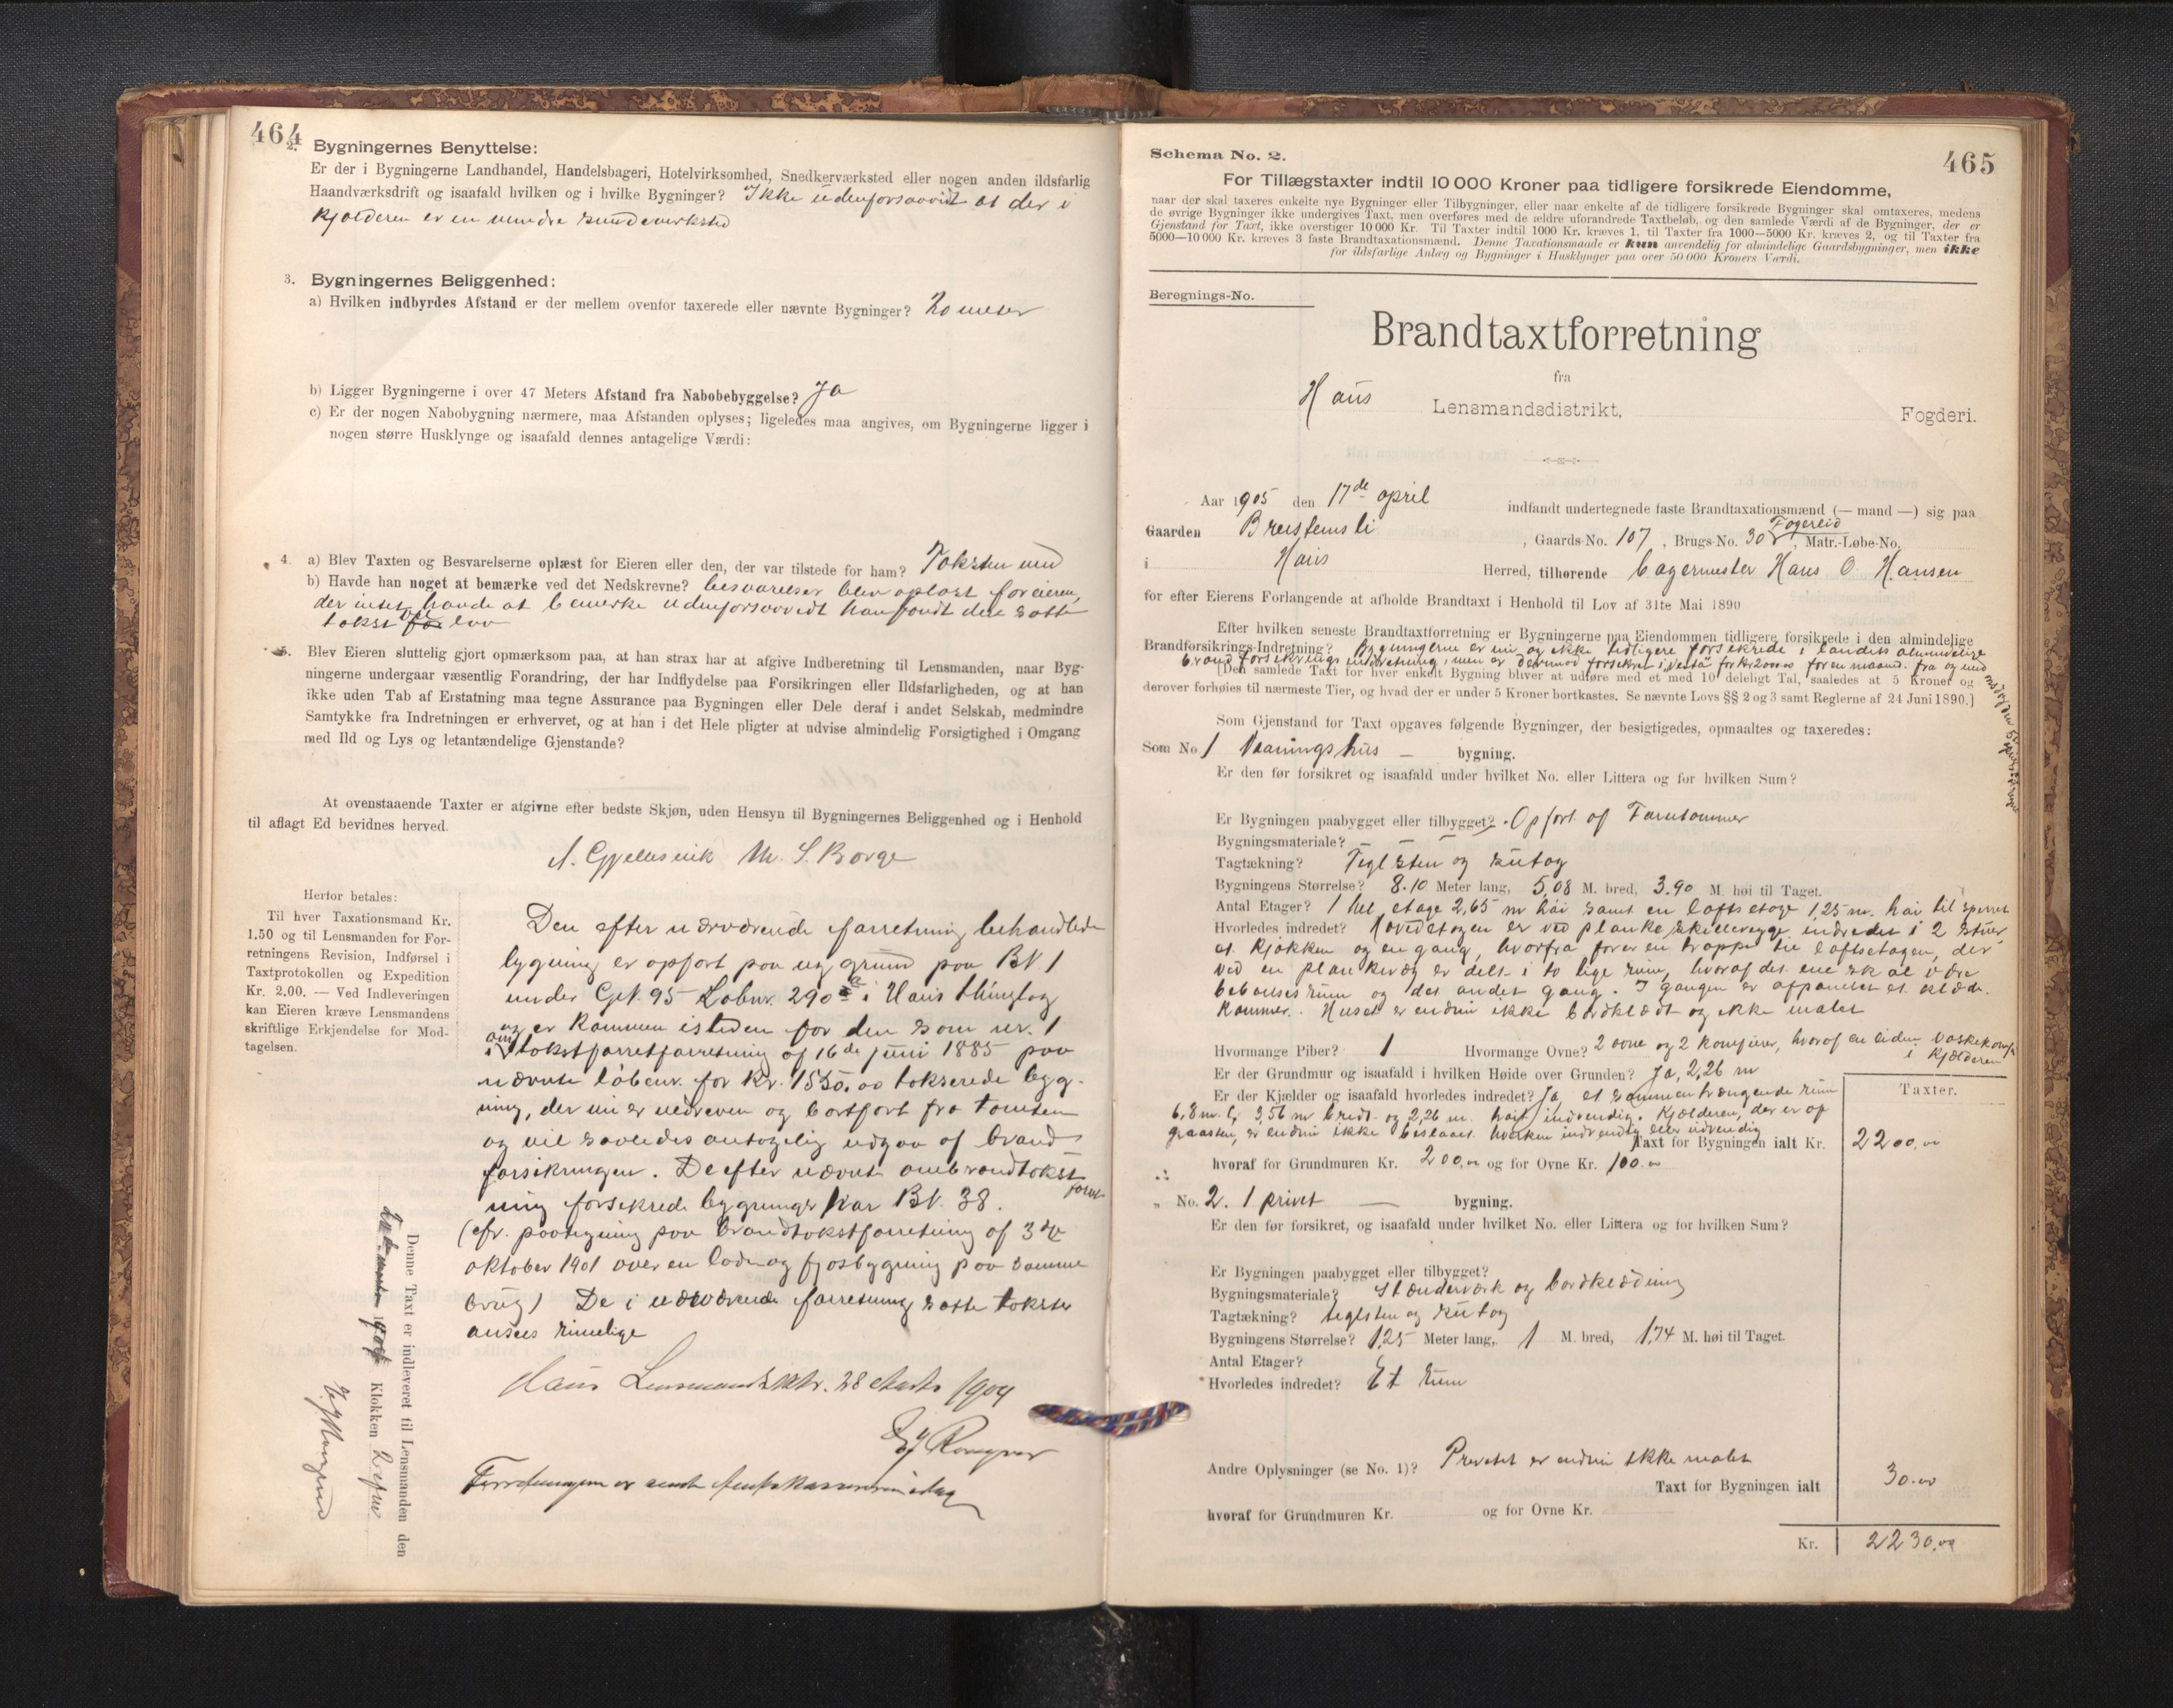 464
2. Bygningernes Benyttelse:
Er der i Bygningerne Landhandel, Handelsbageri, Hotelvirksomhed, Snedkerværksted eller nogen anden ildsfarlig
Haandværksdrift og isaafald hvilken og i hvilke Bygninger? Ikke udenforsaavidt at der i
kjælderen er en mindre smedeverksted
3. Bygningernes Beliggenhed:
a) Hvilken indbyrdes Afstand er der mellem ovenfor taxerede eller nævnte Bygninger? 20 meter
b) Ligger Bygningerne i over 47 Meters Afstand fra Nabobebyggelse? Ja
c) Er der nogen Nabobygning nærmere, maa Afstanden oplyses; ligeledes maa angives, om Bygningerne ligger i
nogen større Husklynge og isaafald dennes antagelige Værdi:
4. a) Blev Taxten og Besvarelserne oplæst for Eieren eller den, der var tilstede for ham? Taksten med
b) Havde han noget at bemærke ved det Nedskrevne? besvarelser blev oplæst for eieren,
der intet havde at bemerke udenforsaavidt han fandt den satte
takst for lav
5. Blev Eieren sluttelig gjort opmærksom paa, at han strax har at afgive Indberetning til Lensmanden, naar Byg-
ningerne undergaar væsentlig Forandring, der har Indflydelse paa Forsikringen eller Ildsfarligheden, og at han
ikke uden Tab af Erstatning maa tegne Assurance paa Bygningen eller Dele deraf i andet Selskab, medmindre
Samtykke fra Indretningen er erhvervet, og at han i det Hele pligter at udvise almindelig Forsigtighed i Omgang
med Ild og Lys og letantændelige Gjenstande?
At ovenstaaende Taxter er afgivne efter bedste Skjøn, uden Hensyn til Bygningernes Beliggenhed og i Henhold
til aflagt Ed bevidnes herved.
A. Gjellesvik M. S. Borge
Herfor betales:
Til hver Taxationsmand Kr.
1.50 og til Lensmanden for For-
retningens Revision, Indførsel i
Taxtprotokollen og Expedition
Kr. 2.00. — Ved Indleveringen
kan Eieren kræve Lensmandens
skriftlige Erkjendelse for Mod-
tagelsen.
Den efter nærværende forretning behandlede
bygning er opført paa ny grund paa BN. 1
under GN. 95 Løbnr. 290 a i Haus thinglag
og er kommen isteden for den som nr. 1
i takstforretforretning af 16de juni 1885 paa
nævnte løbenr. for kr. 1550.00 takserede byg-
ning, der nu er nedreven og bortført fra tomten
og vil saaledes antagelig udgaa af brand
forsikringen. De efter nævnte ombrandtakst
ning forsikrede bygninger har BN. 38.
(cfr. paategning paa brandtakstforretning af 3die
oktober 1901 over en lade og fjøsbygning paa samme
brug) De i nærværende forretning satte takster
ansees rimelige
Haus Lensmandsktr. 28 Marts 1904
Forretningen er sendt Amtskassereren idag
Denne Taxt er indleveret til Lensmanden den
Klokken 2 efm
465
Schema No. 2.
For Tillægstaxter indtil 10 000 Kroner paa tidligere forsikrede Eiendomme,
naar der skal taxeres enkelte nye Bygninger eller Tilbygninger, eller naar enkelte af de tidligere forsikrede Bygninger skal omtaxeres, medens
de øvrige Bygninger ikke undergives Taxt, men overføres med de ældre uforandrede Taxtbeløb, og den samlede Værdi af de Bygninger, der er
Gjenstand for Taxt, ikke overstiger 10 000 Kr. Til Taxter indtil 1000 Kr. kræves 1, til Taxter fra 1000—5000 Kr. kræves 2, og til Taxter fra
5000—10 000 Kr. kræves 3 faste Brandtaxationsmænd. Denne Taxationsmaade er kun anvendelig for almindelige Gaardsbygninger, men ikke
for ildsfarlige Anlæg og Bygninger i Husklynger paa over 50 000 Kroners Værdi.
Beregnings-No.
Brandtaxtforretning
fra
Haus Lensmandsdistrikt, Fogderi.
Aar 1905 den 17de april indfandt undertegnede faste Brandtaxationsmænd (— mand —) sig paa
Gaarden Breistensli, Gaards-No. 107, Brugs-No. 30 Fogereid, Matr.-Løbe-No.
i Haus Herred, tilhørende bagermester Hans O Hansen
for efter Eierens Forlangende at afholde Brandtaxt i Henhold til Lov af 31te Mai 1890
Efter hvilken seneste Brandtaxtforretning er Bygningerne paa Eiendommen tidligere forsikrede i den almindelige
Brandforsikrings-Indretning? Bygningerne er nu og ikke tidligere forsikrede i landets almindelige
brandforsikrings indretning, men er derimod forsikret i Vesta for kr 2000.00 for en maaned. fra og med
[Den samlede Taxt for hver enkelt Bygning bliver at udføre med et med 10 deleligt Tal, saaledes at 5 Kroner og
derover forhøies til nærmeste Tier, og hvad der er under 5 Kroner bortkastes. Se nævnte Lovs §§ 2 og 3 samt Reglerne af 24 Juni 1890.]
Som Gjenstand for Taxt opgaves følgende Bygninger, der besigtigedes, opmaaltes og taxeredes:
Som No 1 Vaaningshus — bygning.
Er den før forsikret og isaafald under hvilket No. eller Littera og for hvilken Sum?
Er Bygningen paabygget eller tilbygget? Opført af Furutømmer
Bygningsmateriale?
Tagtækning? Teglsten og sutag
Bygningens Størrelse? 8.10 Meter lang, 5,08 M. bred, 3.90 M. høi til Taget.
Antal Etager? 1 hel etage 2,65 m høi samt en loftsetage 1,25 m. høi til sperret
Hvorledes indredet? Hovedetagen er ved planke skillevegge indredet i 2 stuer,
et kjøkken og en gang, hvorfra fører en trappe til loftsetagen, der
ved en plankevæg er delt i to lige rum, hvoraf det ene skal være
beboelsesrum og det andet gang. I gangen er afpanelet et klæde-
kammer. Huset er endnu ikke bordklædt og ikke malet
Hvormange Piber? 1 Hvormange Ovne? 2 ovne og 2 komfurer, hvoraf en liden vaskekomf.
i kjælderen
Er der Grundmur og isaafald i hvilken Høide over Grunden? Ja, 2,26 m
Er der Kjælder og isaafald hvorledes indredet? Ja, et sammenhængende rum
6,8 m. l; 3,56 m bredt og 2,26 m. høit indvendig. Kjælderen, der er af
graasten, er endnu ikke beslaaet hverken indvendig eller udvendig
Taxter.
Taxt for Bygningen ialt Kr. 2200.00
hvoraf for Grundmuren Kr. 200,00 og for Ovne Kr. 100.00
„ No. 2. 1 privet — bygning.
Er den før forsikret, og isaafald under hvilket No. eller Littera og for hvilken Sum?
Er Bygningen paabygget eller tilbygget?
Bygningsmateriale? Stænderværk og bordklædning
Tagtækning? teglsten og sutag
Bygningens Størrelse? 1,25 Meter lang, 1 M. bred, 1,74 M. høi til Taget.
Antal Etager?
Hvorledes indredet? Et rum
Andre Oplysninger (se No. 1)? Privetet er endnu ikke malet
Taxt for Bygningen ialt 30.00
hvoraf for Grundmuren Kr. og for Ovne Kr.
Kr. 2230.00